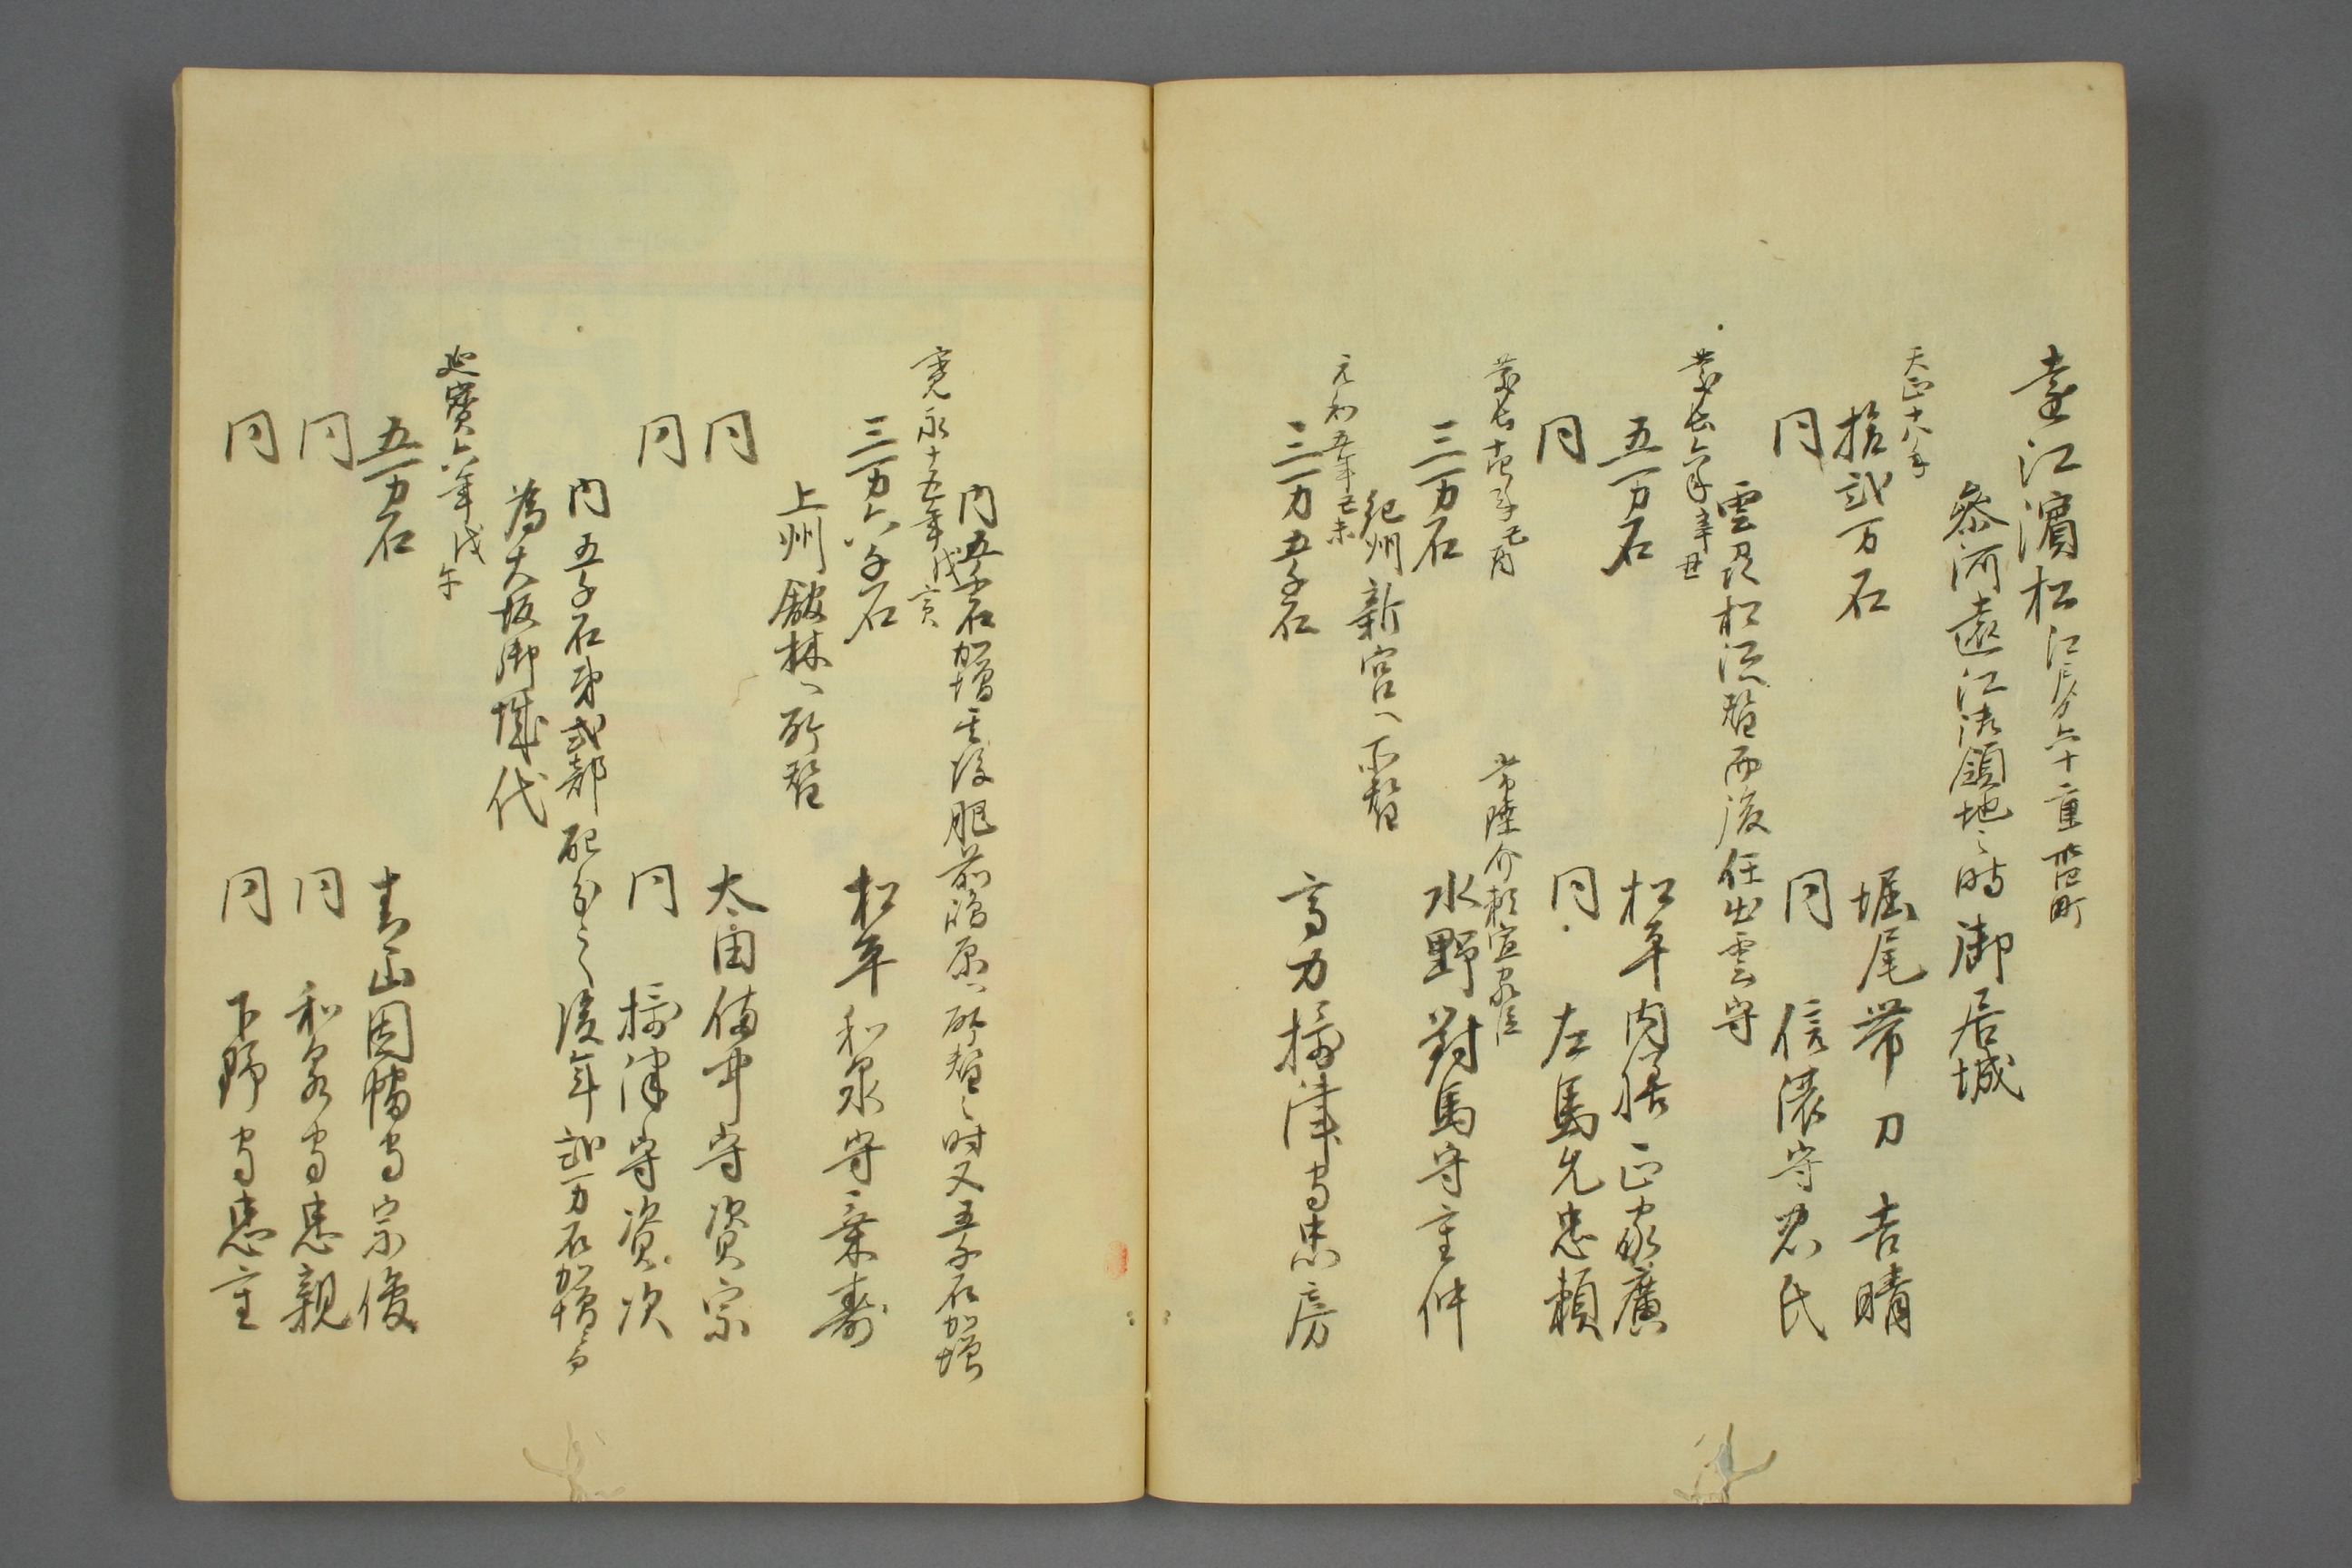 遠江濱松 江戸ヨリ六十 重 町
参河遠江御領地之時御居城
天正十八年
拾貳万石 堀尾帯刀吉晴
同 同 信濃守忠氏
雲州松江所替而後任出雲守
慶長六年辛丑
五万石 松平内膳正家廣
同 同 左馬允忠頼
慶長十四年己酉 常陸介頼宣家臣
三万石 水野對馬守重仲
紀州新宮へ所替
元和五年己未
三万五千石 高力摂津守忠房
内五千石加増其後肥前嶋原へ所替之時又五千石加増
寛永十五年戊寅
三万六千石 松平和泉守乗壽
上州舘林へ所替
同 太田備中守資宗
同 同 摂津守資次
内五千石弟式部配分之後年貳万石加増而
為大坂御城代
延寳六年戊午
五万石 青山因幡守宗俊
同 同 和泉守忠親
同 同 下野守忠重